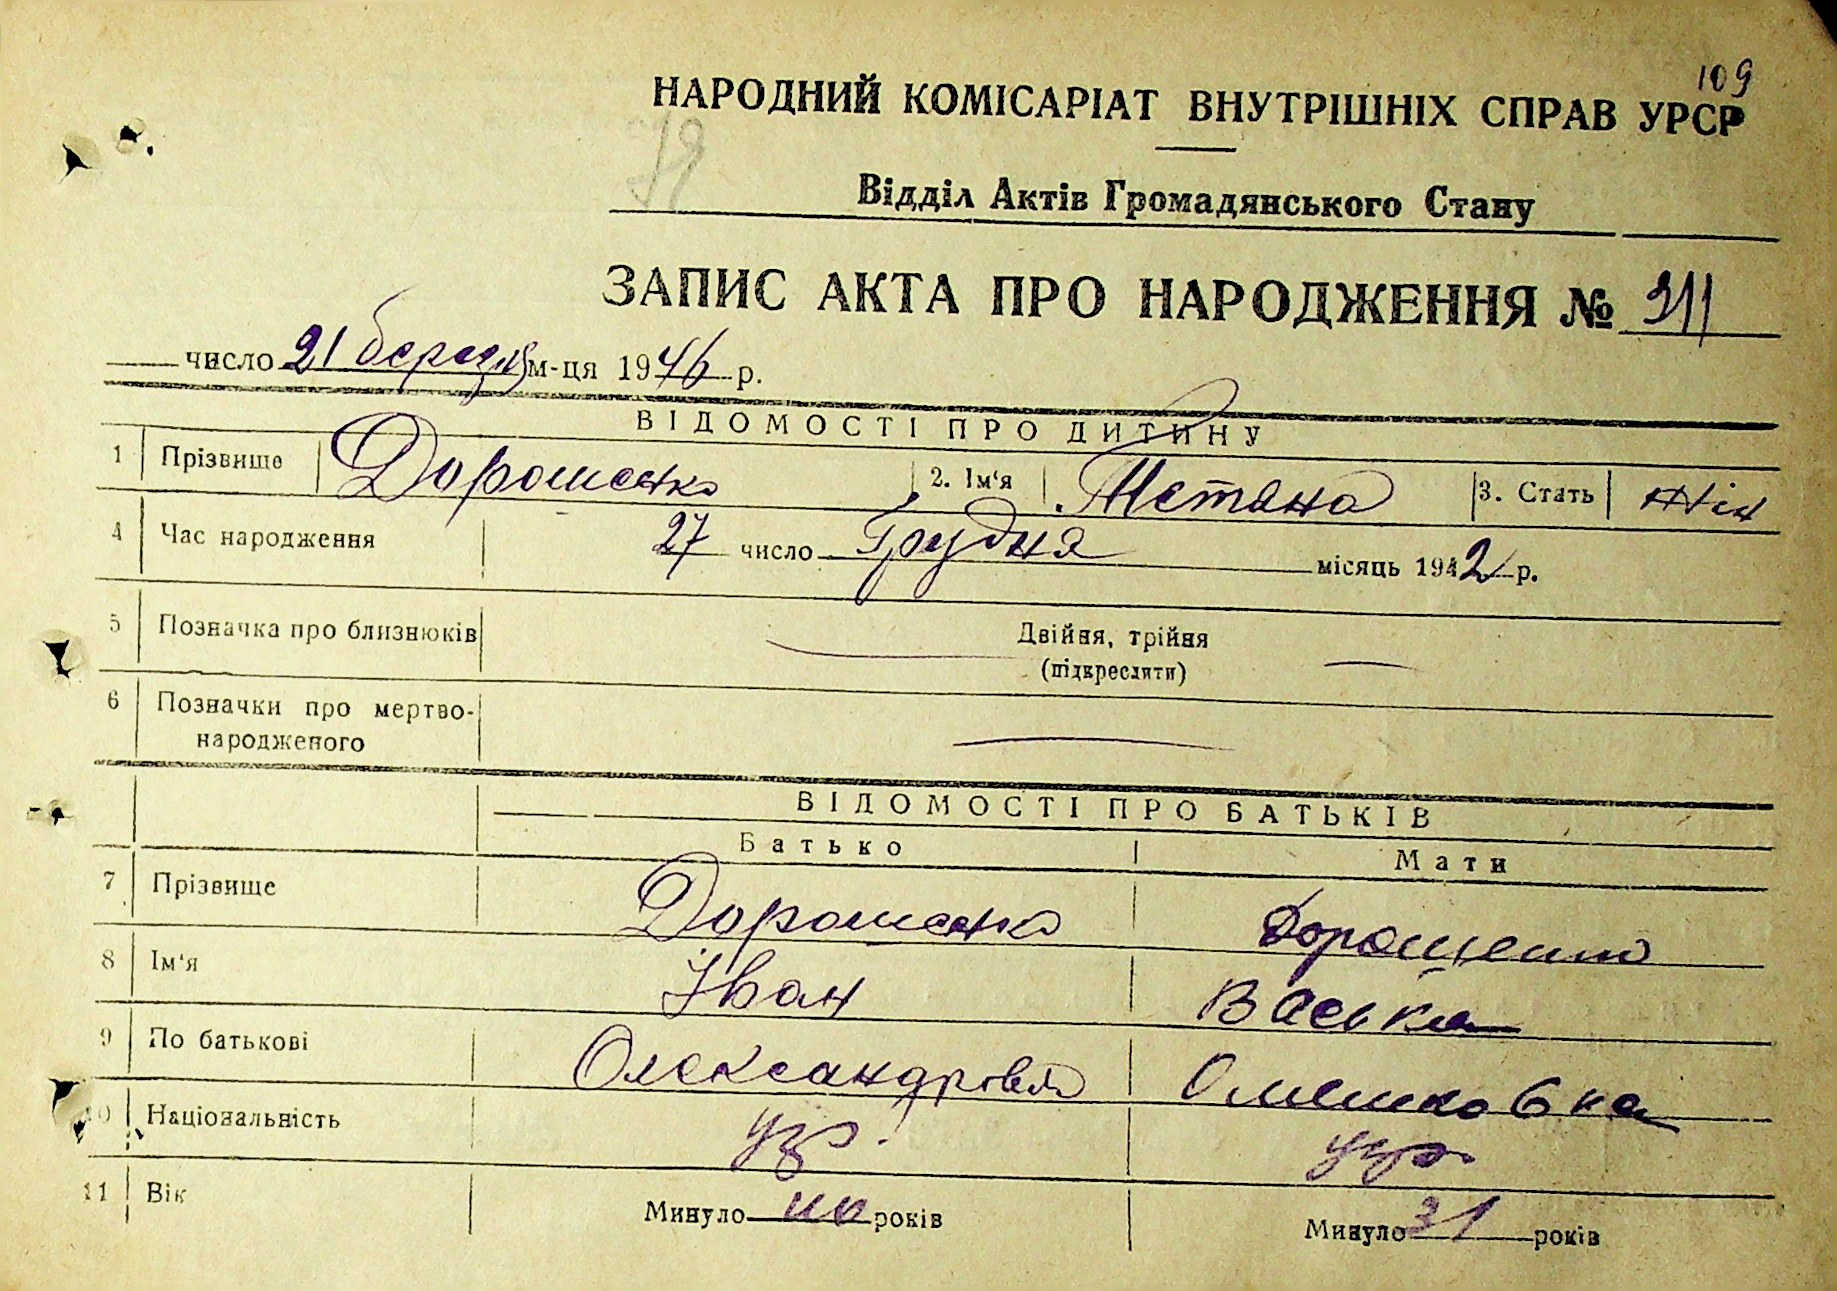 109
НАРОДНИЙ КОМІСАРІАТ ВНУТРІШНІХ СПРАВ УРСР
Відділ Актів Громадянського Стану
ЗАПИС АКТА ПРО НАРОДЖЕННЯ № 211
число 21 березня м-ця 1946 р.
ВІДОМОСТІ ПРО ДИТИНУ
1 Прізвище Дорошенко 2. Ім'я Тетяна 3. Стать жін
4 Час народження 27 число Грудня місяць 1942 р.
5 Позначка про близнюків Двійня, трійня
(підкреслити)
6 Позначки про мертво-
народженого
ВІДОМОСТІ ПРО БАТЬКІВ
Батько Мати
7 Прізвище Дорошенко Дорошенко
8 Ім'я Іван Васька
9 По батькові Олександрович
10 Національність укр. укр.
11 Вік Минуло років Минуло 31 років